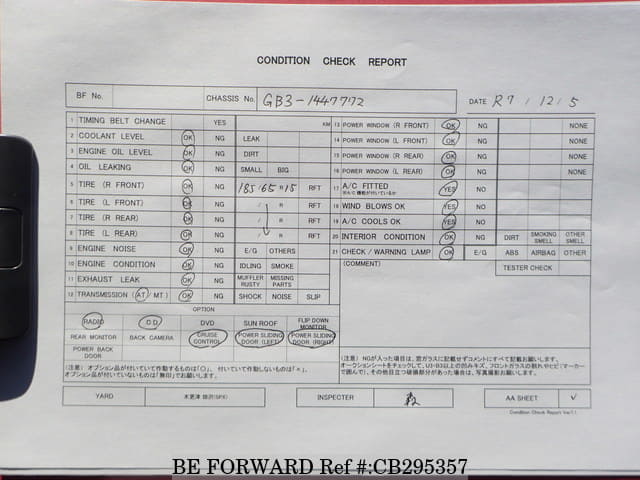 CONDITION CHECK REPORT
BF No. CHASSIS No. GB3-1447772 DATE R7/12/5
1 TIMING BELT CHANGE YES KM
2 COOLANT LEVEL OK NG LEAK
3 ENGINE OIL LEVEL OK NG DIRT
4 OIL LEAKING OK NG SMALL BIG
5 TIRE (R FRONT) OK NG 185/65R15 RFT
6 TIRE (L FRONT) OK NG / R RFT
7 TIRE (R REAR) OK NG / R RFT
8 TIRE (L REAR) OK NG / R RFT
9 ENGINE NOISE OK NG E/G OTHERS
10 ENGINE CONDITION OK NG IDLING SMOKE
11 EXHAUST LEAK OK NG MUFFLER RUSTY MISSING PARTS
12 TRANSMISSION (AT/MT) OK NG SHOCK NOISE SLIP
13 POWER WINDOW (R FRONT) OK NG NONE
14 POWER WINDOW (L FRONT) OK NG NONE
15 POWER WINDOW (R REAR) OK NG NONE
16 POWER WINDOW (L REAR) OK NG NONE
17 A/C FITTED YES NO
※A/C 機能が付いているか
18 WIND BLOWS OK YES NO
19 A/C COOLS OK YES NO
20 INTERIOR CONDITION OK NG DIRT SMOKING SMELL OTHER SMELL
21 CHECK/WARNING LAMP OK E/G ABS AIRBAG OTHER
(COMMENT) TESTER CHECK
OPTION
RADIO CD DVD SUN ROOF FLIP DOWN MONITOR
REAR MONITOR BACK CAMERA CRUISE CONTROL POWER SLIDING DOOR (LEFT) POWER SLIDING DOOR (RIGHT)
POWER BACK DOOR
(注意) オプション品が付いていて作動するものは「○」、付いていて作動しないものは「×」、
オプション品が付いていないものは「無印」でお願いします。
(注意) NGが入った項目は、窓ガラスに記載せずコメントにすべて記載お願いします。
オークションシートをチェックして、U3・B3以上の凹みキズ、フロントガラスの割れやヒビ(マーカー
で囲んで)、その他目立つ破損部分があった場合は、写真撮影お願いします。
YARD 木更津 INSPECTER AA SHEET ✓
Condition Check Report Ver.7.1
BE FORWARD Ref #:CB295357